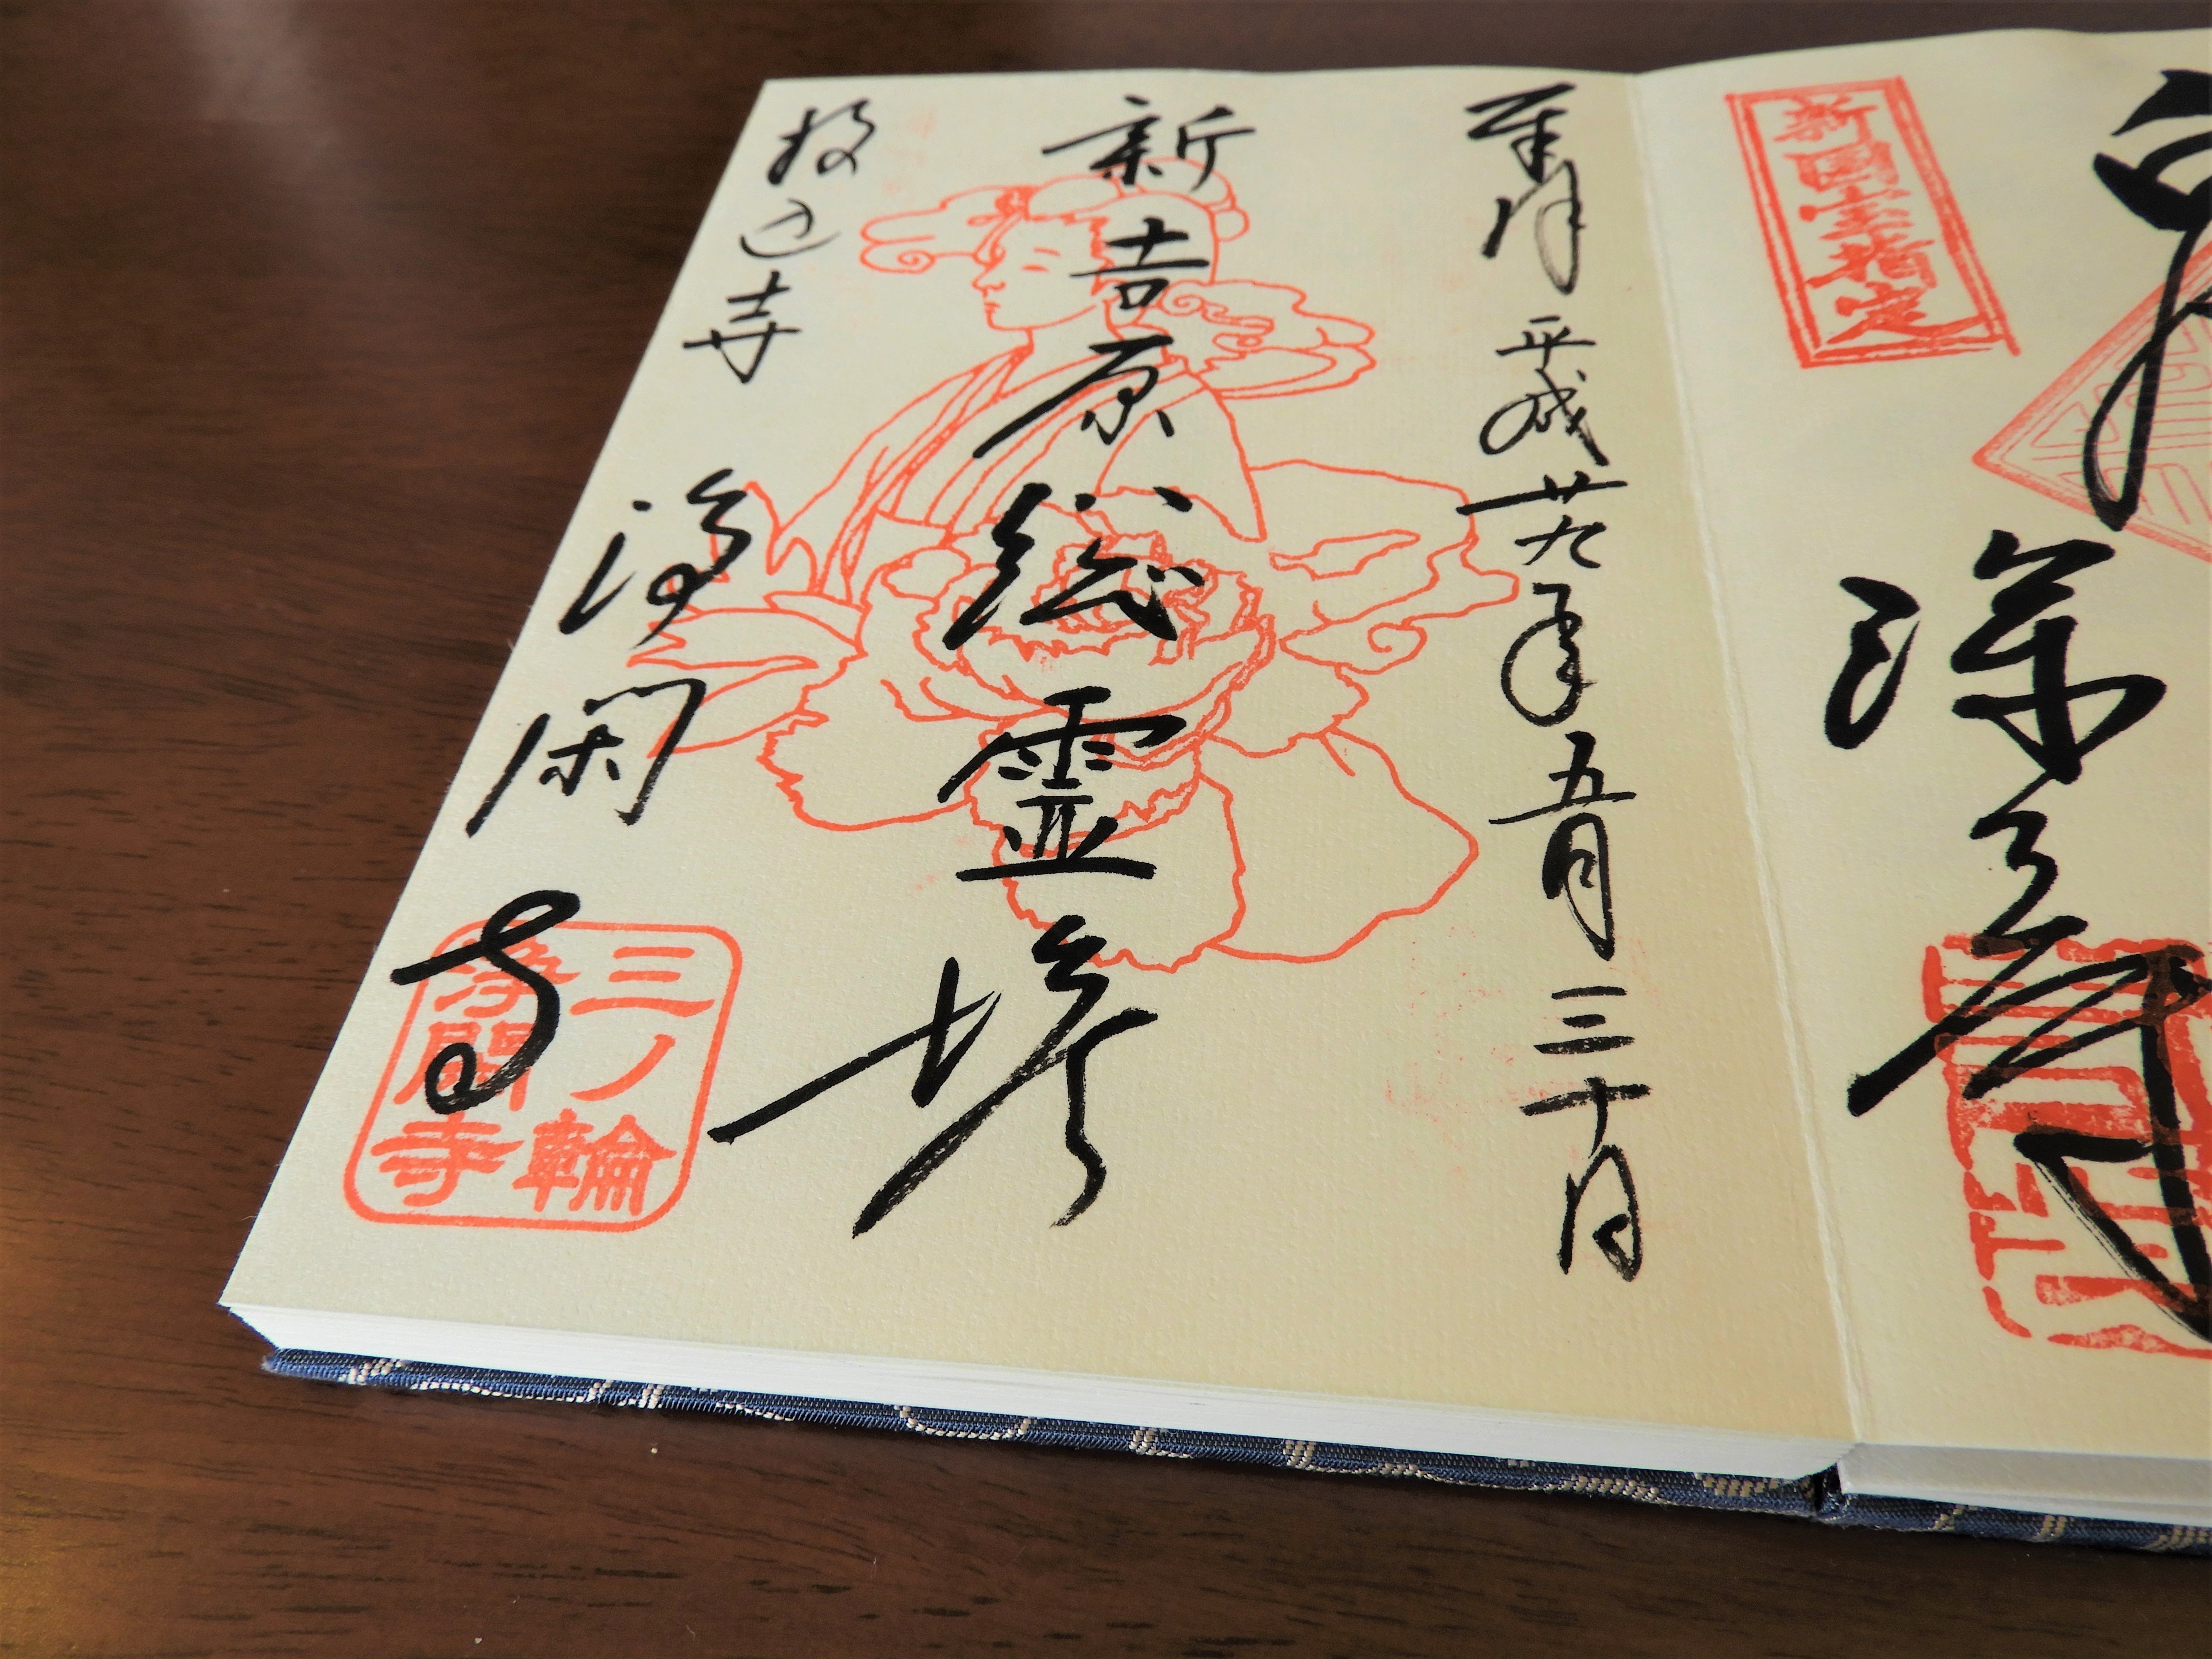 新国宝指定
深大寺
奉拝 平成廿九年五月三十日
新吉原総霊塔
投込寺 浄閑寺
三ノ輪
浄閑寺